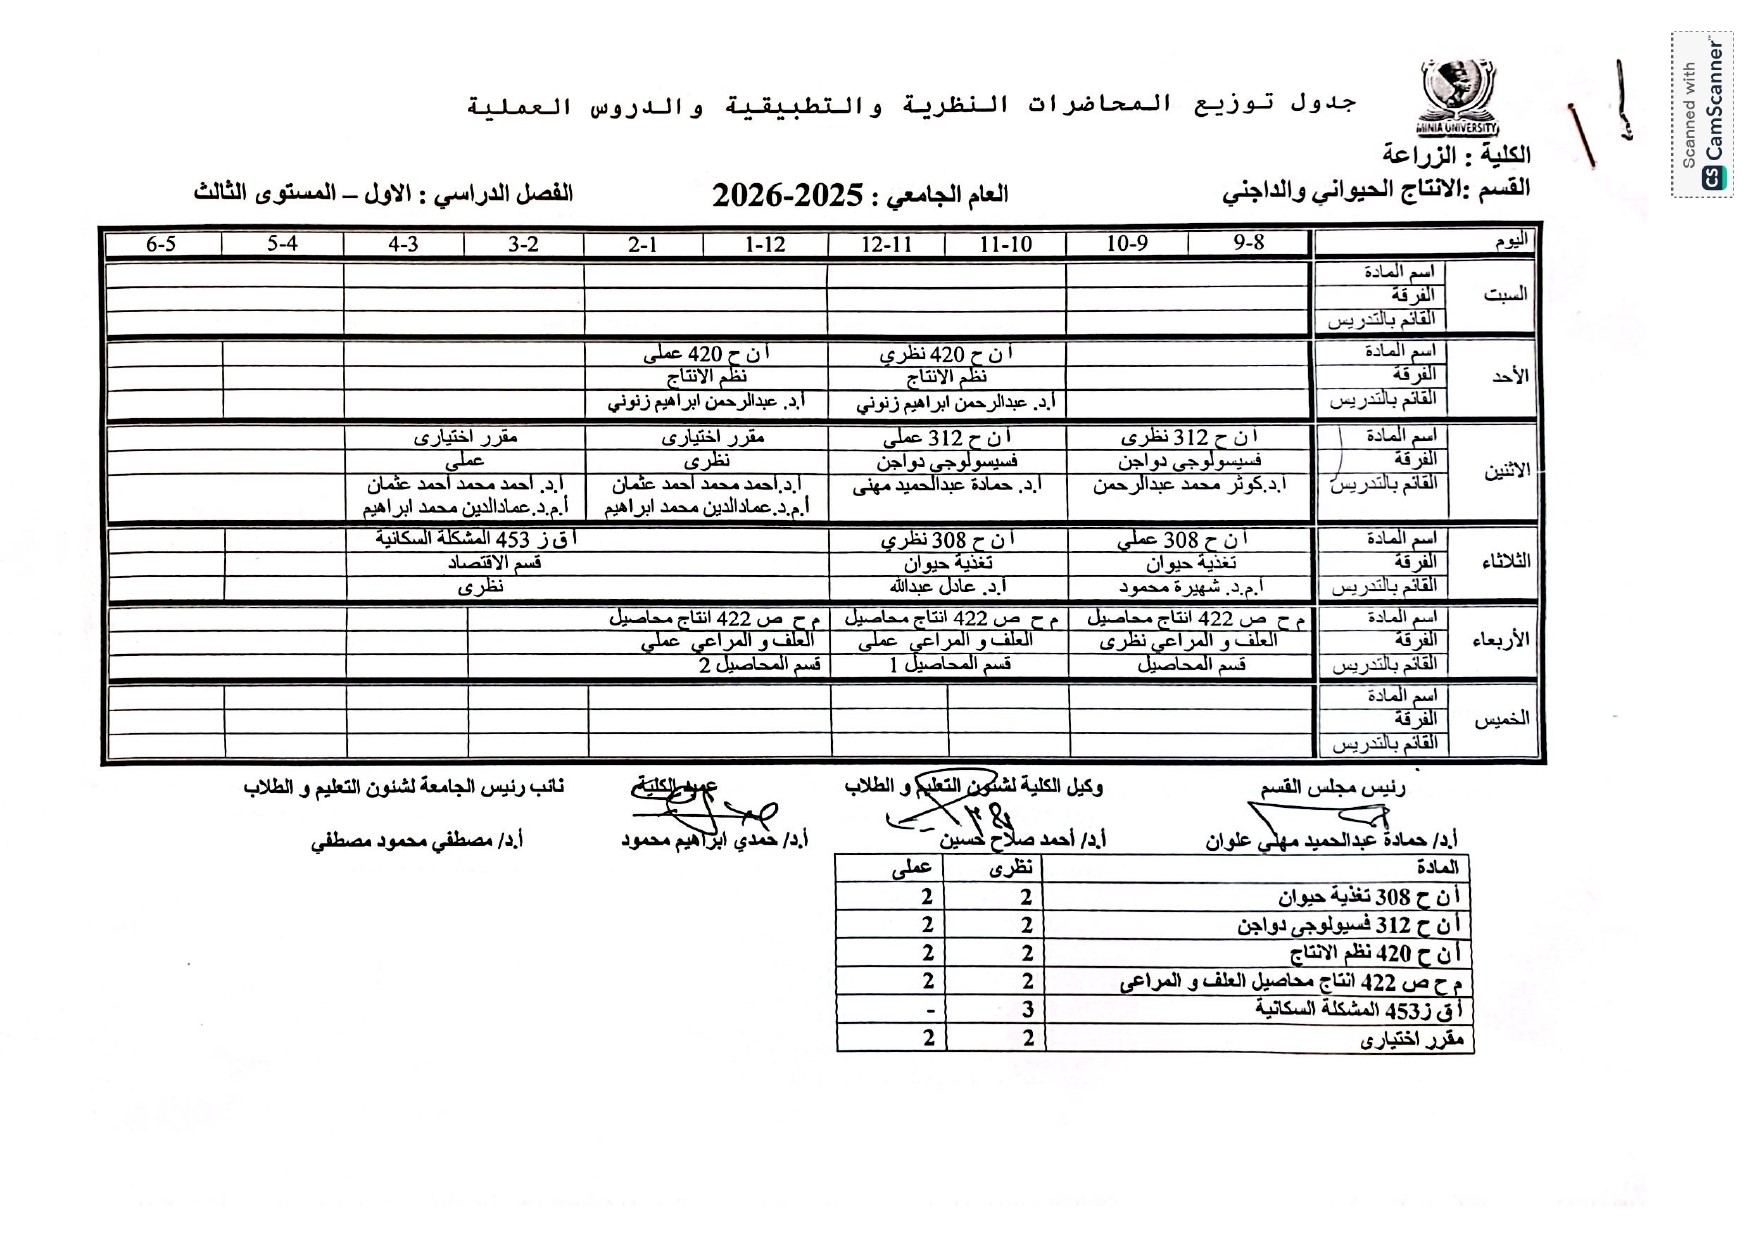 جدول توزيع المحاضرات النظرية والتطبيقية والدروس العملية
MINIA UNIVERSITY
Scanned with
CS CamScanner
الكلية : الزراعة
القسم :الانتاج الحيواني والداجني العام الجامعي : 2025-2026 الفصل الدراسي : الاول – المستوى الثالث
اليوم 8-9 9-10 10-11 11-12 12-1 1-2 2-3 3-4 4-5 5-6
السبت
اسم المادة
الفرقة
القائم بالتدريس
الأحد
اسم المادة أ ن ح 420 نظري أ ن ح 420 عملى
الفرقة نظم الانتاج نظم الانتاج
القائم بالتدريس أ.د. عبدالرحمن ابراهيم زنوني أ.د. عبدالرحمن ابراهيم زنوني
الاثنين
اسم المادة أ ن ح 312 نظرى أ ن ح 312 عملي مقرر اختيارى مقرر اختيارى
الفرقة فسيسولوجى دواجن فسيسولوجى دواجن نظرى عملى
القائم بالتدريس أ.د.كوثر محمد عبدالرحمن أ.د. حمادة عبدالحميد مهنى أ.د.أحمد محمد أحمد عثمان أ.د. أحمد محمد أحمد عثمان
أ.م.د.عمادالدين محمد ابراهيم أ.م.د.عمادالدين محمد ابراهيم
الثلاثاء
اسم المادة أ ن ح 308 عملي أ ن ح 308 نظري أ ق ز 453 المشكلة السكانية
الفرقة تغذية حيوان تغذية حيوان قسم الاقتصاد
القائم بالتدريس أ.م.د. شهيرة محمود أ.د. عادل عبدالله نظرى
الأربعاء
اسم المادة م ح ص 422 انتاج محاصيل م ح ص 422 انتاج محاصيل م ح ص 422 انتاج محاصيل
الفرقة العلف و المراعي نظرى العلف و المراعي عملى العلف و المراعي عملي
القائم بالتدريس قسم المحاصيل قسم المحاصيل 1 قسم المحاصيل 2
الخميس
اسم المادة
الفرقة
القائم بالتدريس
رئيس مجلس القسم وكيل الكلية لشئون التعليم و الطلاب عميد الكلية نائب رئيس الجامعة لشئون التعليم و الطلاب
أ.د/ حمادة عبدالحميد مهنى علوان أ.د/ أحمد صلاح حسين أ.د/ حمدي ابراهيم محمود أ.د/ مصطفي محمود مصطفي
المادة نظرى عملى
أ ن ح 308 تغذية حيوان 2 2
أ ن ح 312 فسيولوجى دواجن 2 2
أ ن ح 420 نظم الانتاج 2 2
م ح ص 422 انتاج محاصيل العلف و المراعى 2 2
أ ق ز453 المشكلة السكانية 3 -
مقرر اختيارى 2 2